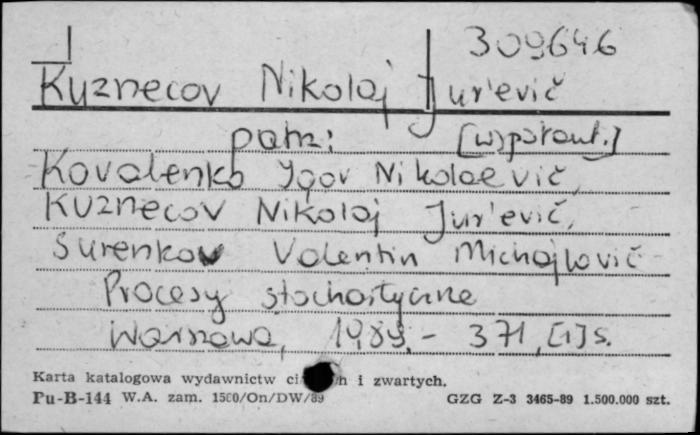 309646
Kuznecov Nikolaj Jur'evič
patrz: [współaut.]
Kovalenko Igor Nikolaevič,
Kuznecov Nikolaj Jur'evič,
Šurenkov Valentin Michajlovič
Procesy stochastyczne
Warszawa, 1989. - 371, [1] s.
Karta katalogowa wydawnictw i zwartych.
Pu-B-144 W.A. zam. 1500/On/DW/89 GZG Z-3 3465-89 1.500.000 szt.